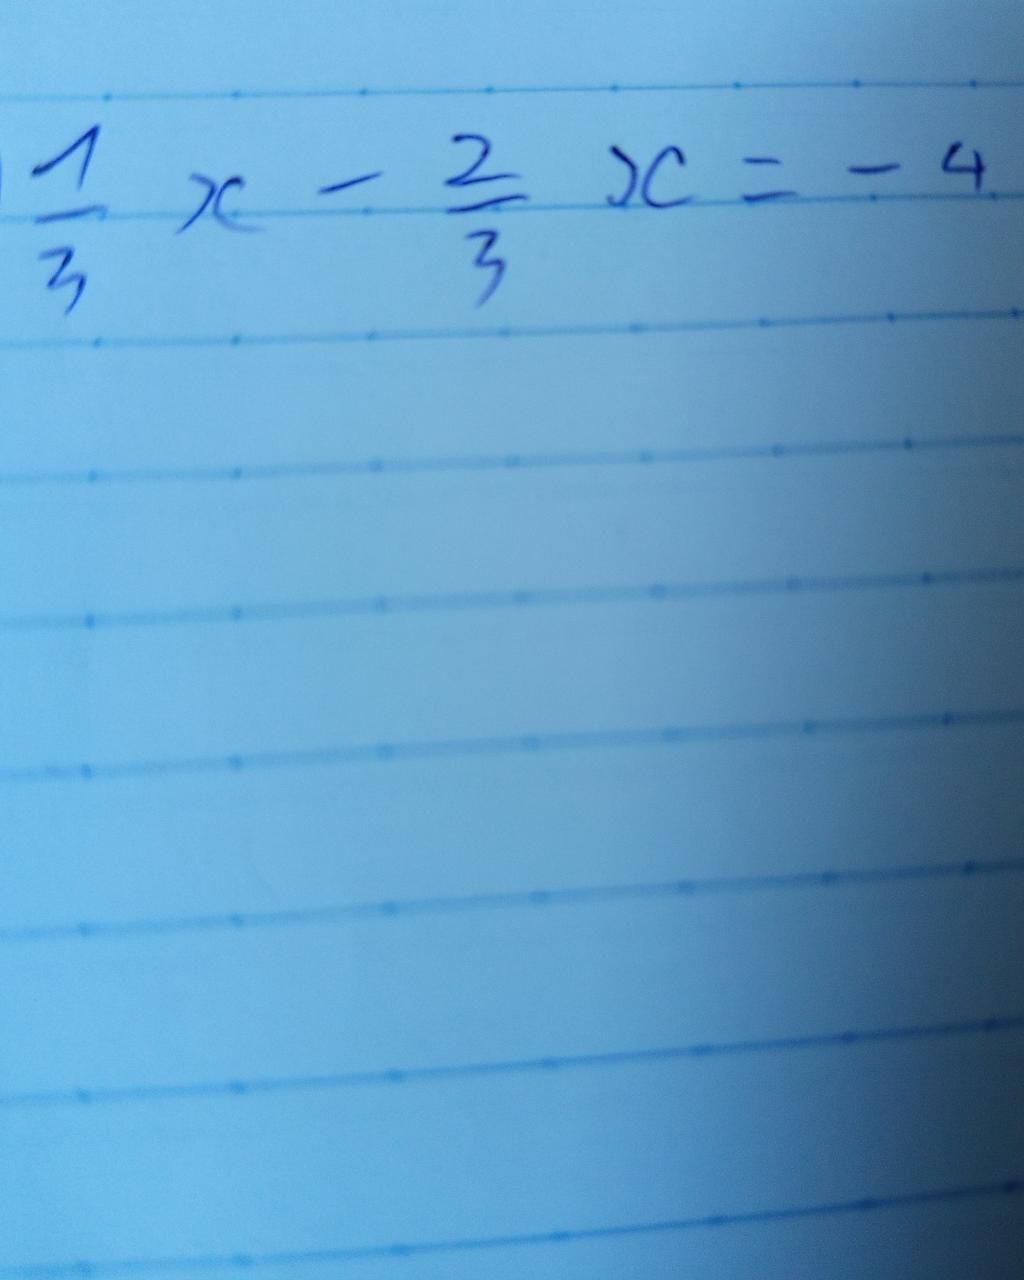 1/3 x - 2/3 x = - 4